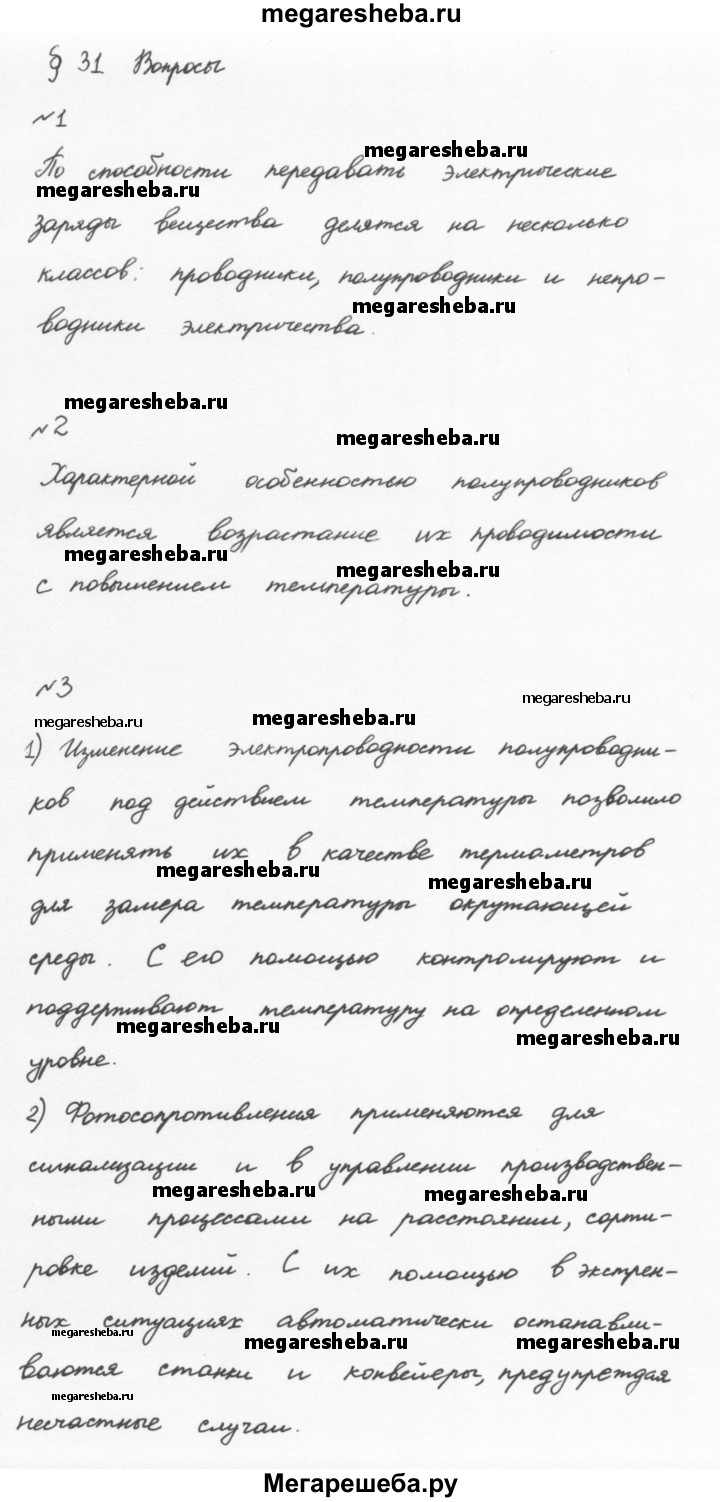 megaresheba.ru
§ 31 Вопросы
№1
megaresheba.ru
По способности передавать электрические
megaresheba.ru
заряды вещества делятся на несколько
классов: проводники, полупроводники и непро-
megaresheba.ru
водники электричества.
megaresheba.ru
№2
megaresheba.ru
Характерной особенностью полупроводников
является возрастание их проводимости
megaresheba.ru
megaresheba.ru
с повышением температуры.
№3
megaresheba.ru
megaresheba.ru
megaresheba.ru
1) Изменение электропроводности полупроводни-
ков под действием температуры позволило
применять их в качестве термометров
megaresheba.ru
megaresheba.ru
для замера температуры окружающей
среды. С его помощью контролируют и
поддерживают температуру на определенном
megaresheba.ru
megaresheba.ru
уровне.
2) Фотосопротивления применяются для
сигнализации и в управлении производствен-
megaresheba.ru
megaresheba.ru
ными процессами на расстоянии, сорти-
ровке изделий. С их помощью в экстрен-
ных ситуациях автоматически останавли-
megaresheba.ru
megaresheba.ru
megaresheba.ru
ваются станки и конвейеры, предупреждая
megaresheba.ru
несчастные случаи.
Мегарешеба.ру